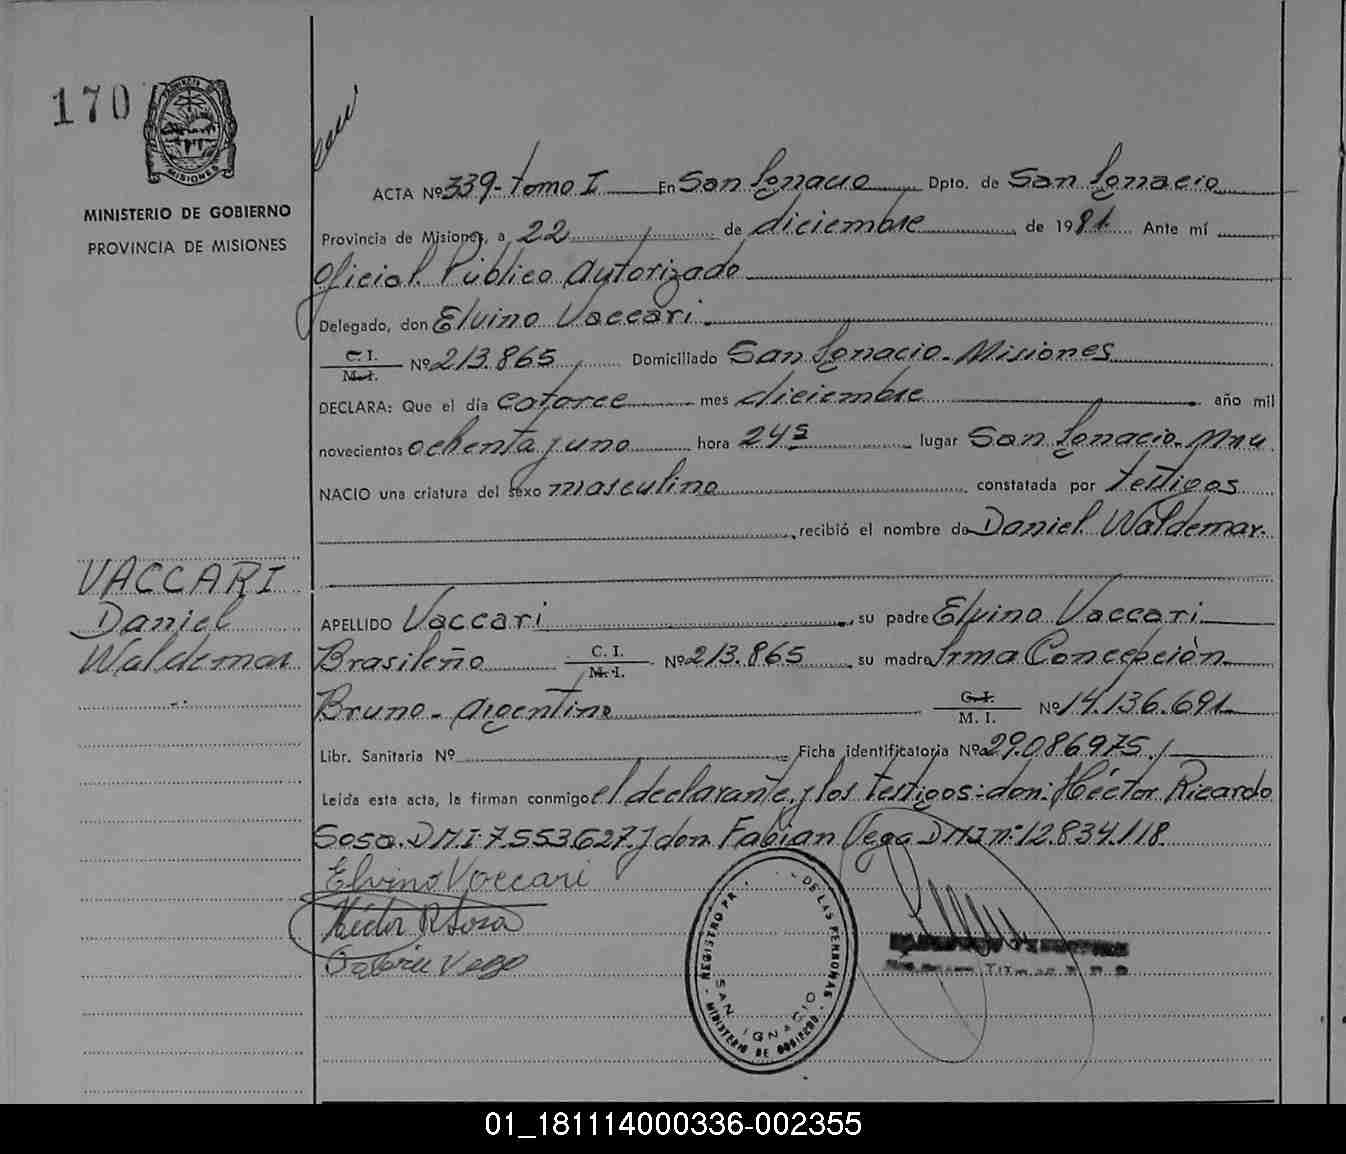 170
PROVINCIA DE
MISIONES
MINISTERIO DE GOBIERNO
PROVINCIA DE MISIONES
ACTA Nº 339-Tomo I En San Ignacio Dpto. de San Ignacio
Provincia de Misiones, a 22 de diciembre de 1981. Ante mí
Oficial Público Autorizado
Delegado, don Elvino Vaccari.
C. I.
M. I. Nº 213.865 Domiciliado San Ignacio. Misiones
DECLARA: Que el día catorce mes diciembre año mil
novecientos ochenta y uno hora 24s lugar San Ignacio. Mnes
NACIO una criatura del sexo masculino constatada por testigos
, recibió el nombre de Daniel Waldemar.
VACCARI
Daniel
Waldemar
APELLIDO Vaccari , su padre Elvino Vaccari
Brasileño C. I. M. I. Nº 213.865 , su madre Irma Concepción
Bruno. argentina C. I. M. I. Nº 14.136.691
Libr. Sanitaria Nº Ficha identificatoria Nº 29.086975./
Leída esta acta, la firman conmigo el declarante, y los testigos: don: Héctor Ricardo
Sosa. DMI 7.553.627. y don. Fabian Vega DMI nº 12.834.118.
Elvino Vaccari
Héctor R Sosa
Vega
REGISTRO PR . DE LAS PERSONAS
SAN IGNACIO
MINISTERIO DE GOBIERNO
01_181114000336-002355